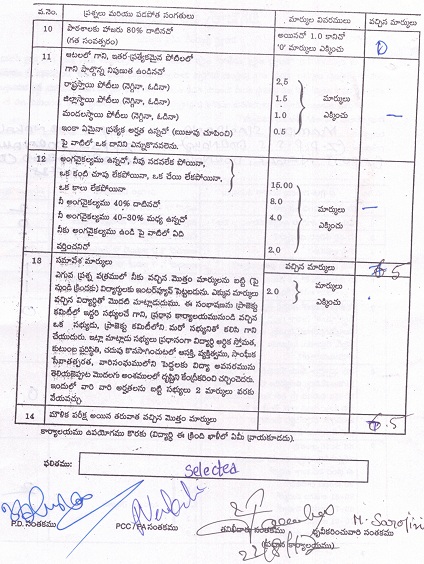 వ.నెం. ప్రశ్నలు మరియు పదపోత సంగతులు మార్కుల వివరములు వచ్చిన మార్కులు
10 పాఠశాలకు హాజరు 80% దాటినచో అయినచో 1.0 కానిచో
(గత సంవత్సరం) '0' మార్కులు ఎక్కించు 0
11 ఆటలలో గాని, ఇతర ప్రత్యేకమైన పోటీలలో
గాని పాల్గొన్న నిపుణుత ఉండినచో
రాష్ట్రస్థాయి పోటీలు (నెగ్గినా, ఓడినా) 2.5
జిల్లాస్థాయి పోటీలు (నెగ్గినా, ఓడినా) 1.5 మార్కులు
మండలస్థాయి పోటీలు (నెగ్గినా, ఓడినా) 1.0 ఎక్కించు –
ఇంకా ఏమైనా ప్రత్యేక అర్హత ఉన్నచో (ఋజువు చూపించి) 0.5
పై వాటిలో ఒక దానిని ఎన్నుకొనవలెను.
12 అంగవైకల్యము ఉన్నచో, నీవు నడవలేక పోయినా,
ఒక కంటి చూపు లేకపోయినా, ఒక చేయి లేకపోయినా,
ఒక కాలు లేకపోయినా 15.00
నీ అంగవైకల్యము 40% దాటినచో 8.0 మార్కులు –
నీ అంగవైకల్యము 40-30% మధ్య ఉన్నచో 4.0
నీకు అంగవైకల్యము ఉండి పై వాటిలో ఏది ఎక్కించు
వర్తించనిచో 2.0
13 సమావేశ మార్కులు వచ్చిన మార్కులు 5
ఎగువ ప్రశ్న పత్రములో నీకు వచ్చిన మొత్తం మార్కులను బట్టి (పై 2.0 మార్కులు
నుండి క్రిందకు) విద్యార్థులకు ఇంటర్వ్యూన్ పెట్టబడును. ఎక్కువ మార్కులు ఎక్కించు
వచ్చిన విద్యార్థితో మొదటి మాట్లాడుదుము. ఈ సంభాషణను ప్రాజెక్టు
కమిటీలో ఇద్దరి సభ్యులచే గాని, ప్రధాన కార్యాలయమునుండి వచ్చిన
ఒక సభ్యుడు, ప్రాజెక్టు కమిటీలోని, మరో సభ్యునితో కలిసి గాని
చేయుదురు. ఇట్లా మాట్లాడు సభ్యులు ప్రధానంగా విద్యార్థి ఆర్థిక స్తోమత,
కుటుంబ పరిస్థితి, చదువు కొనసాగించుటలో ఆసక్తి, వ్యక్తిత్వము, సాంఘిక
సేవాతత్పరత, వారిసంఘములోని పెద్దలకు విద్యా అవసరమును
తెలియజెప్పుట మొదలగు అంశములలో దృష్టిని కేంద్రీకరించి చర్చించెదరు.
ఇందులో వారి వారి అర్హతలను బట్టి సభ్యులు 2 మార్కులు వరకు
వేయవచ్చు
14 మౌళిక పరీక్ష అయిన తరువాత వచ్చిన మొత్తం మార్కులు 6.5
కార్యాలయము ఉపయోగము కొరకు (విద్యార్థి ఈ క్రింది ఖాళీలో ఏమీ వ్రాయకూడదు).
ఫలితము: selected
M. Sarojini
P.D. సంతకము PCC / PA సంతకము తనిఖీదారు సంతకము ధృవీకరించువారి సంతకము
(ప్రధాన కార్యాలయము)